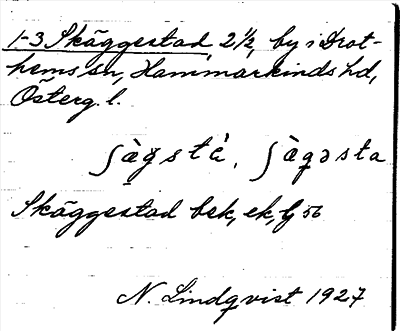 1-3 Skäggestad, 2½, by i Drot-
hems sn, Hammarkinds hd,
Österg. l.
ʃàg̬stà, ʃàqəsta
Skäggestad bsk, ek, lj 56
N. Lindqvist 1927